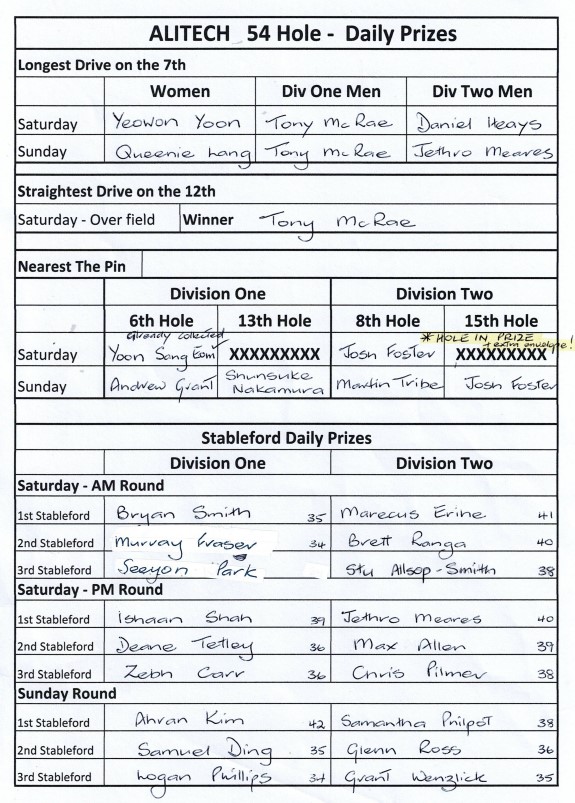 ALITECH 54 Hole - Daily Prizes
Longest Drive on the 7th
Women Div One Men Div Two Men
Saturday Yeowon Yoon Tony McRae Daniel Heays
Sunday Queenie Lang Tony McRae Jethro Meares
Straightest Drive on the 12th
Saturday - Over field Winner Tony McRae
Nearest The Pin
Division One Division Two
6th Hole 13th Hole 8th Hole 15th Hole
already collected * HOLE IN PRIZE
+ extra envelope!
Saturday Yoon Sang Eom XXXXXXXXX Josh Foster XXXXXXXXX
Sunday Andrew Grant Shunsuke Nakamura Martin Tribe Josh Foster
Stableford Daily Prizes
Division One Division Two
Saturday - AM Round
1st Stableford Bryan Smith 35 Marecus Erihe 41
2nd Stableford Murray Fraser 34 Brett Ranga 40
3rd Stableford Seeyon Park Stu Allsop-Smith 38
Saturday - PM Round
1st Stableford Ishaan Shah 39 Jethro Meares 40
2nd Stableford Deane Tetley 36 Max Allen 39
3rd Stableford Zebh Carr 36 Chris Pilmer 38
Sunday Round
1st Stableford Ahran Kim 42 Samantha Philpot 38
2nd Stableford Samuel Ding 35 Glenn Ross 36
3rd Stableford Logan Phillips 34 Grant Wenzlick 35